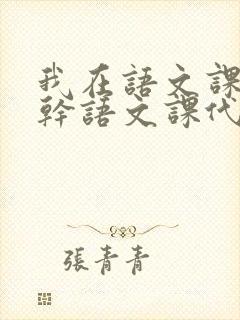 我在語文課
幹語文課代
張青青